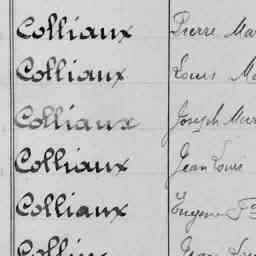 Colliaux Pierre Mar
Colliaux Louis Ma
Colliaux Joseph Mar
Colliaux Jean Louis
Colliaux Eugene
Jean